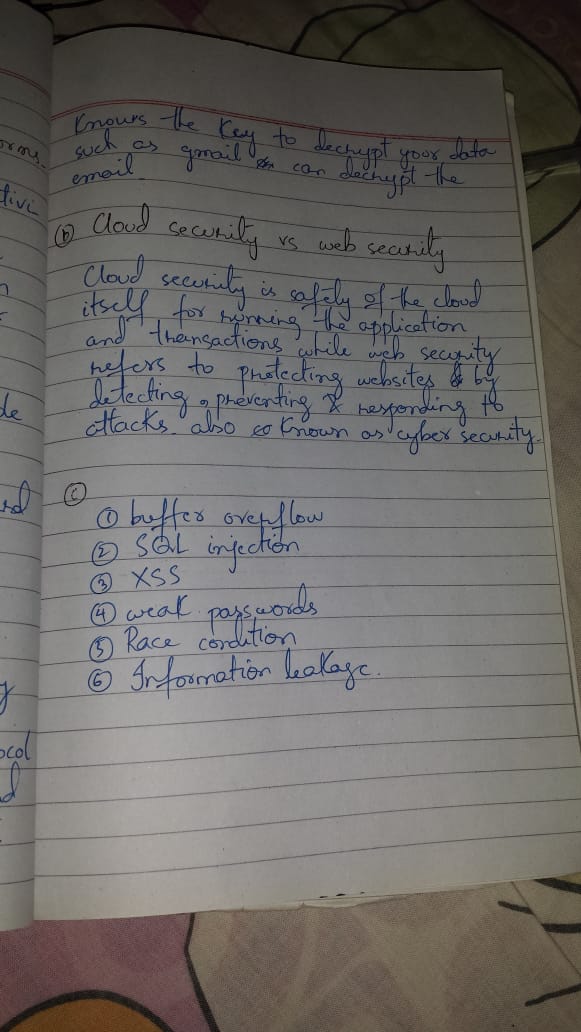 knows the key to decrypt your data
such as gmail can decrypt the
email
(b) Cloud security vs web security
Cloud security is safety of the cloud
itself for running the application
and transactions while web security
refers to protecting websites by
detecting, preventing & responding to
attacks also known as cyber security.
(c)
① buffer overflow
② SQL injection
③ XSS
④ weak passwords
⑤ Race condition
⑥ Information leakage.
orms.
ocol